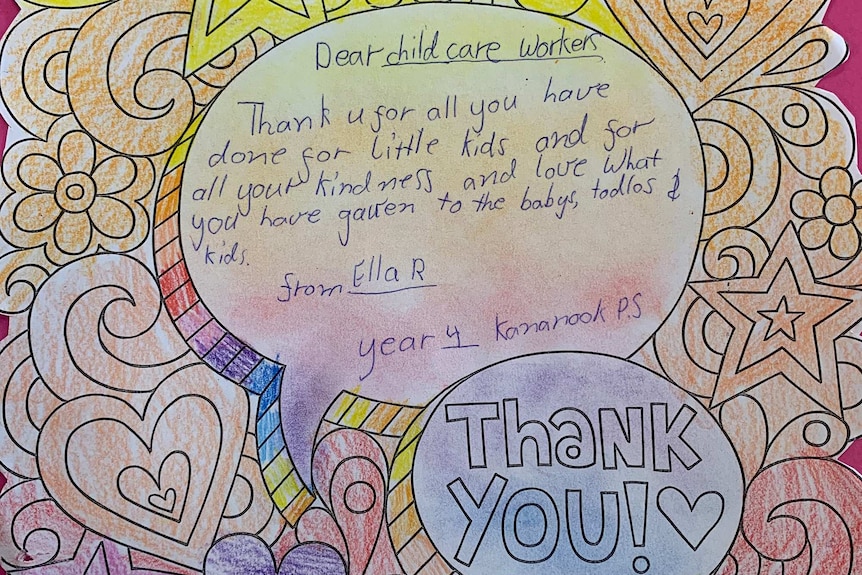 Dear child care workers
Thank u for all you have
done for little kids and for
all your kindness and love what
you have gaven to the babys, todlos &
kids.
from Ella R
year 4 Kananook P.S
Thank
You!